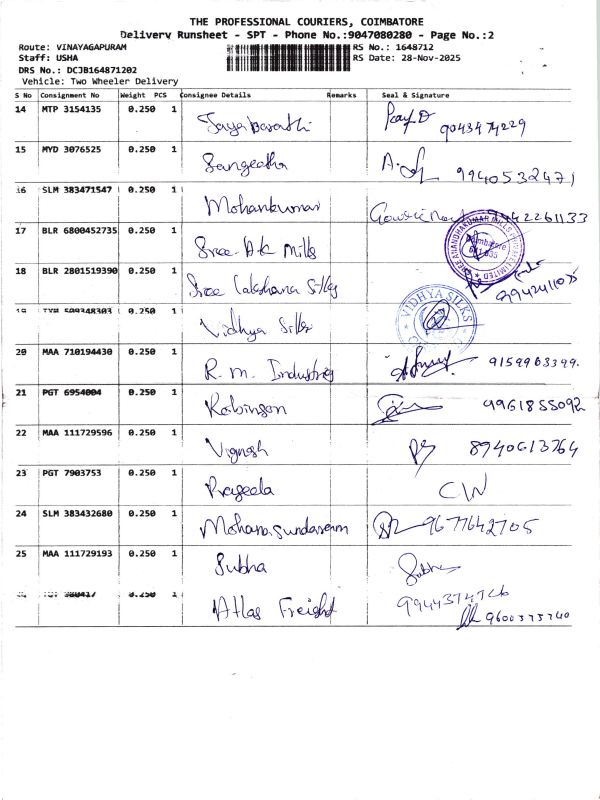 THE PROFESSIONAL COURIERS, COIMBATORE
Delivery Runsheet - SPT - Phone No.:9047080280 - Page No.:2
Route: VINAYAGAPURAM RS No.: 1648712
Staff: USHA RS Date: 28-Nov-2025
DRS No.: DCJB164871202
Vehicle: Two Wheeler Delivery
S No Consignment No Weight PCS Consignee Details Remarks Seal & Signature
14 MTP 3154135 0.250 1 Jayabarathi 9043474229
15 MYD 3076525 0.250 1 Sangeetha 9940532471
16 SLM 383471547 0.250 1 Mohankumar 9442261133
17 BLR 6800452735 0.250 1 Sree Ak Mills
18 BLR 2801519390 0.250 1 Sree Lakshana Silks
19 509348303 0.250 1 Vidhya Silks VIDHYA SILKS
20 MAA 710194430 0.250 1 R.M. Industries 9159963399
21 PGT 6954004 0.250 1 Robinson 9961855092
22 MAA 111729596 0.250 1 Vignesh 8940613764
23 PGT 7903753 0.250 1 Prageela
24 SLM 383432680 0.250 1 Mohanasundaram 9677642705
25 MAA 111729193 0.250 1 Subha Subha
9944374726
0.250 1 Atlas Freight 9600375740